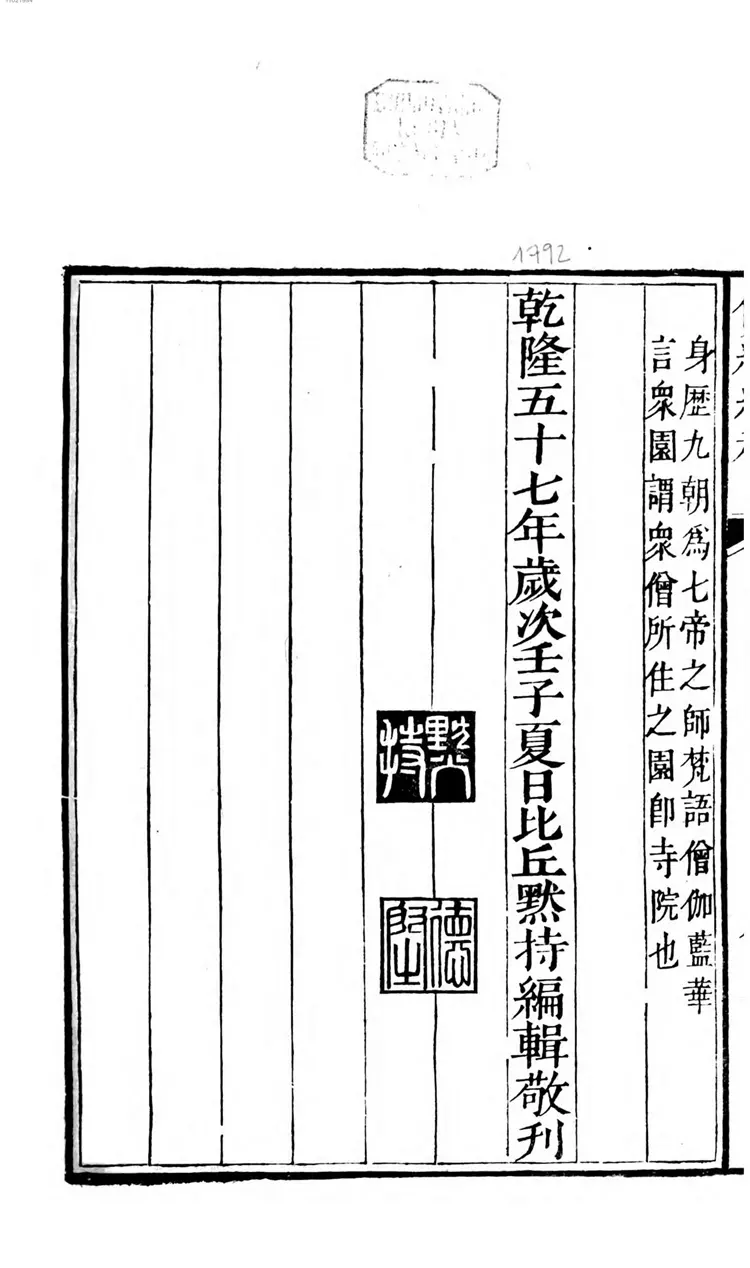 1792
身歴九朝爲七帝之師梵語僧伽藍華
言衆園謂衆僧所住之園卽寺院也
乾隆五十七年歲次壬子夏日比丘默持編輯敬刊
默持
德堅